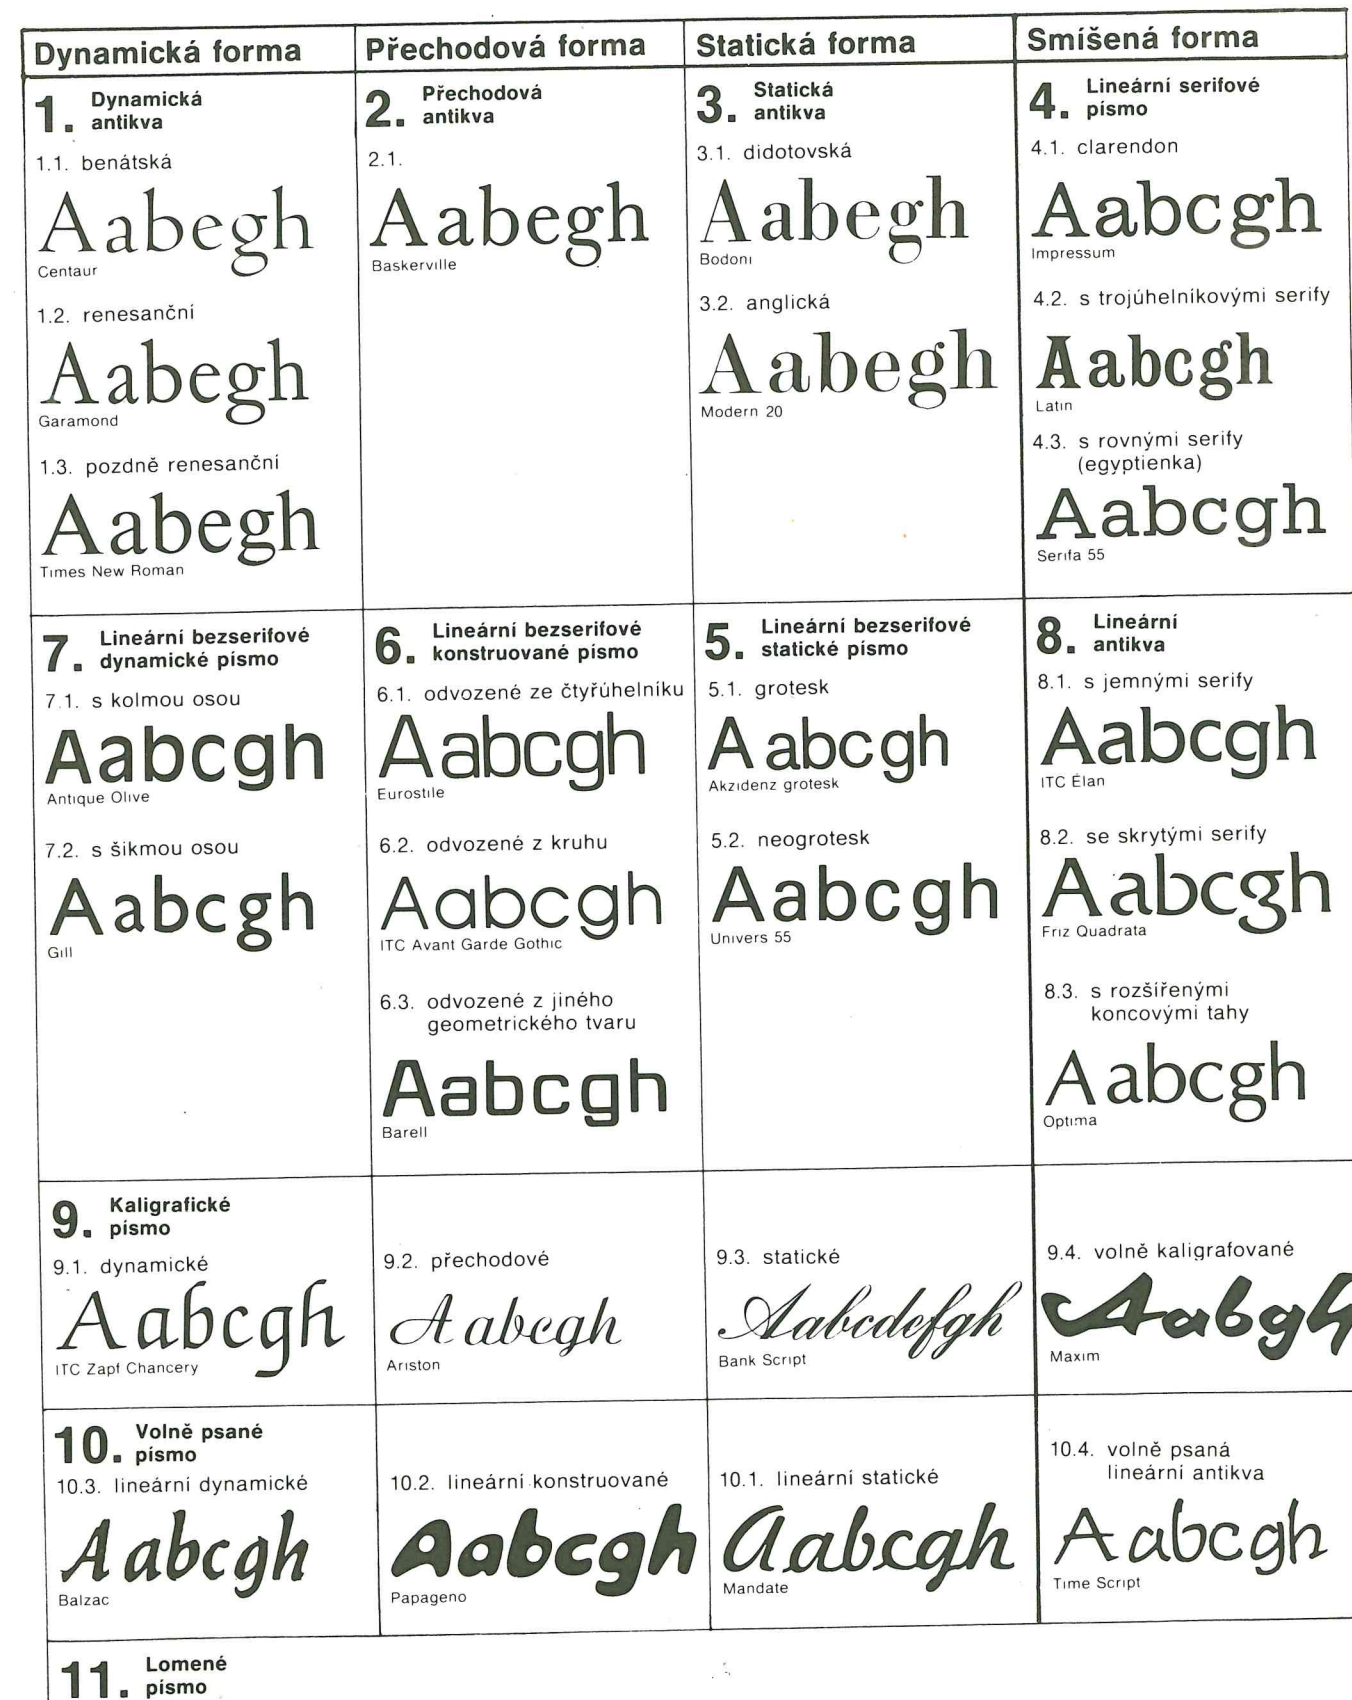 Dynamická forma
Přechodová forma
Statická forma
Smíšená forma
1. Dynamická
antikva
1.1. benátská
Aabegh
Centaur
1.2. renesanční
Aabegh
Garamond
1.3. pozdně renesanční
Aabegh
Times New Roman
2. Přechodová
antikva
2.1.
Aabegh
Baskerville
3. Statická
antikva
3.1. didotovská
Aabegh
Bodoni
3.2. anglická
Aabegh
Modern 20
4. Lineární serifové
písmo
4.1. clarendon
Aabcgh
Impressum
4.2. s trojúhelníkovými serify
Aabcgh
Latin
4.3. s rovnými serify
(egyptienka)
Aabcgh
Serifa 55
7. Lineární bezserifové
dynamické písmo
7.1. s kolmou osou
Aabcgh
Antique Olive
7.2. s šikmou osou
Aabcgh
Gill
6. Lineární bezserifové
konstruované písmo
6.1. odvozené ze čtyřúhelníku
Aabcgh
Eurostile
6.2. odvozené z kruhu
Aabcgh
ITC Avant Garde Gothic
6.3. odvozené z jiného
geometrického tvaru
Aabcgh
Barell
5. Lineární bezserifové
statické písmo
5.1. grotesk
Aabcgh
Akzidenz grotesk
5.2. neogrotesk
Aabcgh
Univers 55
8. Lineární
antikva
8.1. s jemnými serify
Aabcgh
ITC Élan
8.2. se skrytými serify
Aabcgh
Friz Quadrata
8.3. s rozšířenými
koncovými tahy
Aabcgh
Optima
9. Kaligrafické
písmo
9.1. dynamické
Aabcgh
ITC Zapf Chancery
9.2. přechodové
Aabcgh
Ariston
9.3. statické
Aabcdefgh
Bank Script
9.4. volně kaligrafované
Aabgh
Maxim
10. Volně psané
písmo
10.3. lineární dynamické
Aabcgh
Balzac
10.2. lineární konstruované
Aabcgh
Papageno
10.1. lineární statické
Aabcgh
Mandate
10.4. volně psaná
lineární antikva
Aabcgh
Time Script
11. Lomené
písmo